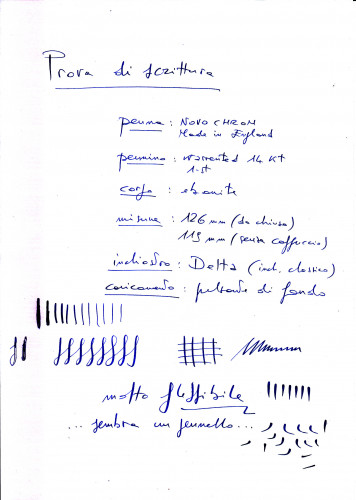 Prova di scrittura
penna : NOVO CHROM
Made in England
pennino : warrented 14 Kt
1-st
corpo : ebanite
misure : 126 mm (da chiusa)
119 mm (senza cappuccio)
inchiostro : Delta (incl. classico)
caricamento : pulsante di fondo
molto flessibile
... sembra un pennello ...